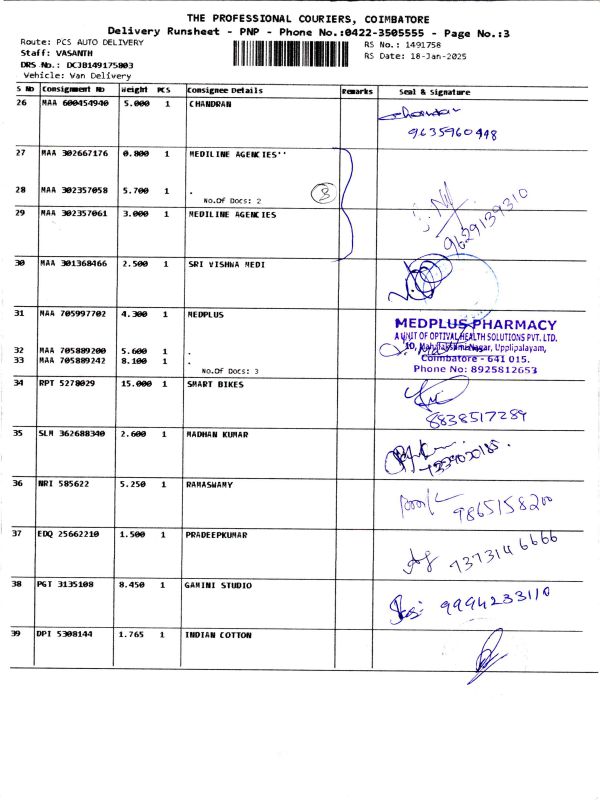 THE PROFESSIONAL COURIERS, COIMBATORE
Delivery Runsheet - PNP - Phone No.:0422-3505555 - Page No.:3
Route: PCS AUTO DELIVERY
RS No.: 1491758
Staff: VASANTH
RS Date: 18-Jan-2025
DRS No.: DCJB149175803
Vehicle: Van Delivery
S No Consignment No Weight PCS Consignee Details Remarks Seal & Signature
26 MAA 600454940 5.000 1 CHANDRAN
9635960448
27 MAA 302667176 0.800 1 MEDILINE AGENCIES''
28 MAA 302357058 5.700 1 .
No.Of Docs: 2
3
29 MAA 302357061 3.000 1 MEDILINE AGENCIES
9629139310
30 MAA 301368466 2.500 1 SRI VISHNA MEDI
31 MAA 705997702 4.300 1 MEDPLUS
MEDPLUS PHARMACY
A UNIT OF OPTIVAL HEALTH SOLUTIONS PVT. LTD.
10, Mahalakshmi Nagar, Upplipalayam,
Coimbatore - 641 015.
Phone No: 8925812653
32 MAA 705889200 5.600 1 .
33 MAA 705889242 8.100 1 .
No.Of Docs: 3
34 RPT 5278029 15.000 1 SMART BIKES
8838517289
35 SLM 362688340 2.600 1 MADHAN KUMAR
36 NRI 585622 5.250 1 RAMASWAMY
9865158200
37 EDQ 25662210 1.500 1 PRADEEPKUMAR
7373146666
38 PGT 3135108 8.450 1 GAMINI STUDIO
9994233110
39 DPI 5308144 1.765 1 INDIAN COTTON